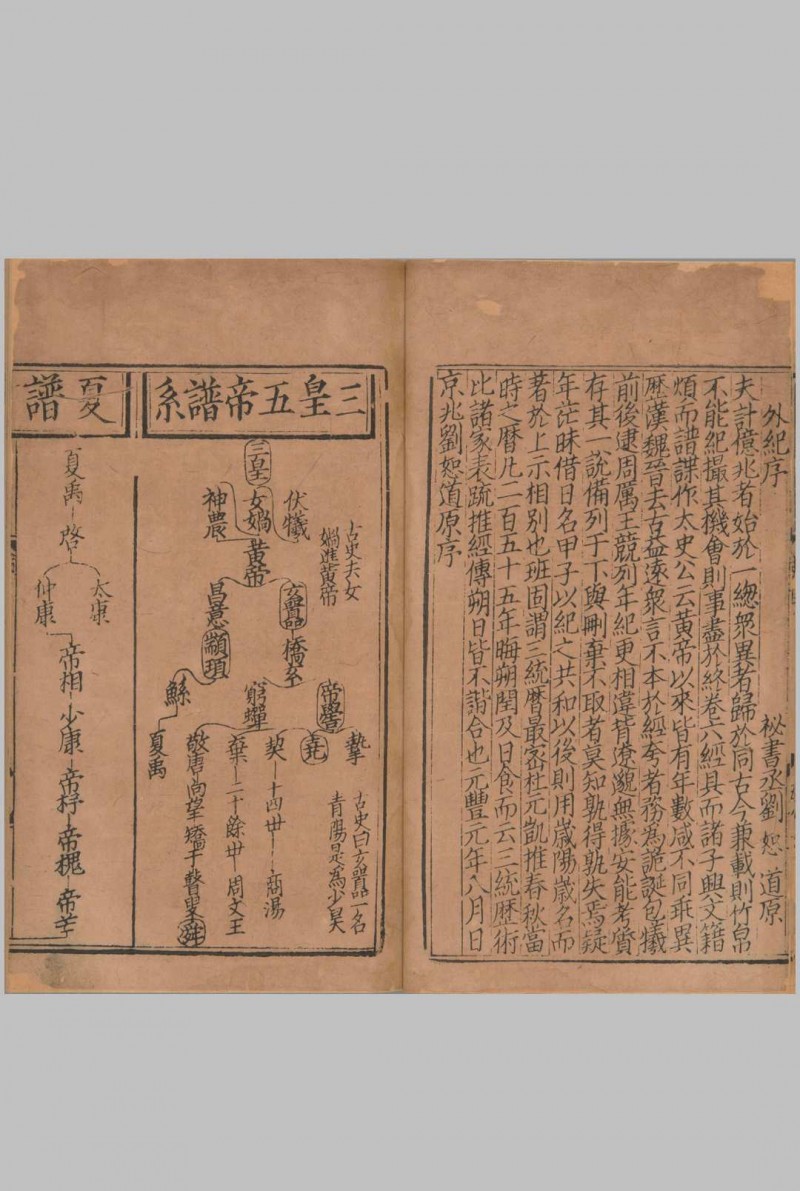 外紀序
秘書丞劉 恕 道原
夫計億兆者始於一總衆異者歸於同古今兼載則竹帛
不能紀撮其機會則事盡於終卷六經具而諸子興文籍
煩而譜諜作太史公云黃帝以來皆有年數咸不同乖異
歷漢魏晉去古益遠衆言不本於經夸者務為詭誕包犧
前後逮周厲王競列年紀更相違背遼邈無據安能考質
存其一說備列于下與刪棄不取者莫知孰得孰失焉疑
年茫昧借日名甲子以紀之共和以後則用歲陽歲名而
著於上示相別也班固謂三統曆最密杜元凱推春秋當
時之曆凡二百五十五年晦朔閏及日食而云三統歷術
比諸家表疏推經傳朔日皆不諧合也元豐元年八月日
京兆劉恕道原序
三皇五帝譜系
三皇
伏犧
女媧
神農
古史夫女
媧進黃帝
黃帝
玄囂
橋亟
昌意
顓頊
帝嚳
窮蟬
鯀
摯
堯
契 十四世 商湯
棄 二十餘世 周文王
敬康 尚望 矯干 瞽叟 舜
夏禹
古史曰玄囂一名
青陽是為少昊
夏譜
夏禹 啓
太康
仲康
帝相 少康 帝杼 帝槐 帝芒